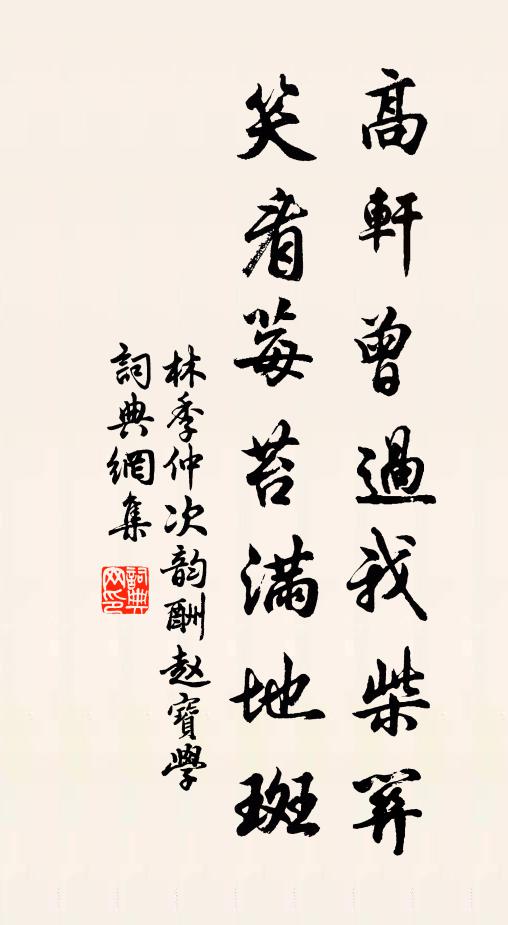 高軒曾過我柴關
笑看莓苔滿地斑
林季仲次韵酬赵寶學
詞典網集
詞典网印